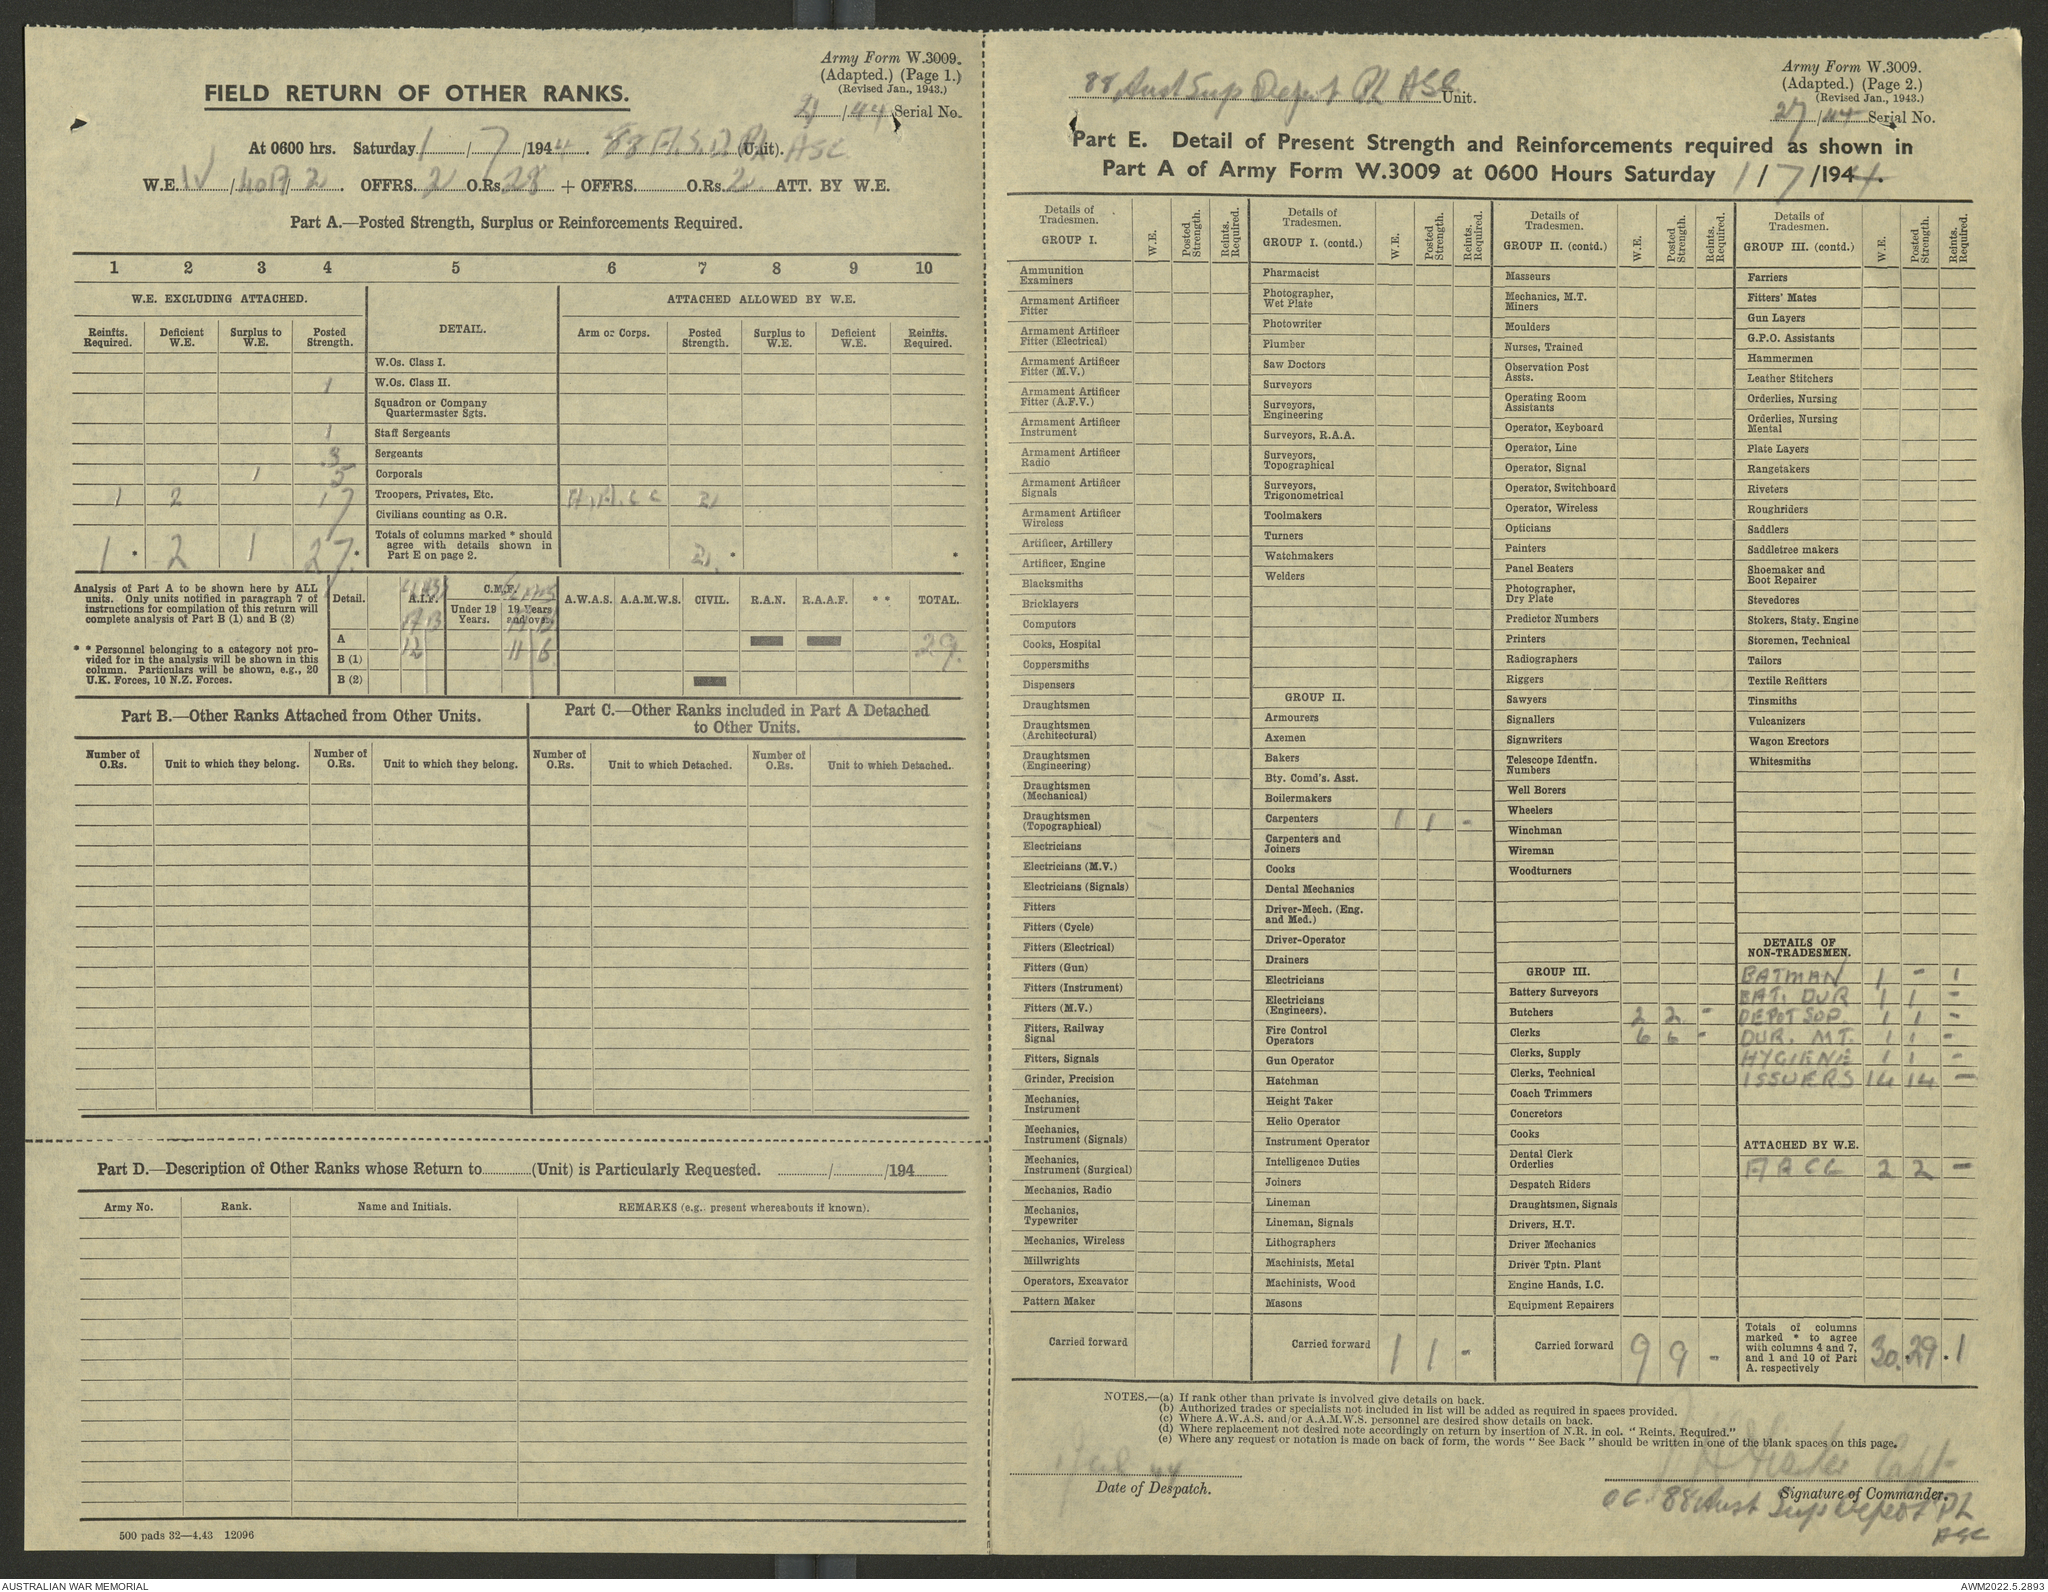 Army Form W.3009.
(Adapted.) (Page 1.)
(Revised Jan., 1943.)
FIELD RETURN OF OTHER RANKS.
/44 Serial No.
At 0600 hrs. Saturday 1/7/1944. 88 A.S.D. Pl ASC (Unit).
W.E. IV/40A/2. OFFRS. 2 O.Rs. 28 + OFFRS. O.Rs. 2 ATT. BY W.E.
Part A.—Posted Strength, Surplus or Reinforcements Required.
1 2 3 4 5 6 7 8 9 10
W.E. EXCLUDING ATTACHED. DETAIL. ATTACHED ALLOWED BY W.E.
Reinfts. Required. Deficient W.E. Surplus to W.E. Posted Strength. Arm or Corps. Posted Strength. Surplus to W.E. Deficient W.E. Reinfts. Required.
W.Os. Class I.
1 W.Os. Class II.
Squadron or Company Quartermaster Sgts.
1 Staff Sergeants
3 Sergeants
1 5 Corporals
1 2 17 Troopers, Privates, Etc. A.A.C.C 2
Civilians counting as O.R.
1 * 2 1 27 * Totals of columns marked * should agree with details shown in Part E on page 2. 2 * *
Analysis of Part A to be shown here by ALL units. Only units notified in paragraph 7 of instructions for compilation of this return will complete analysis of Part B (1) and B (2)
* * Personnel belonging to a category not provided for in the analysis will be shown in this column. Particulars will be shown, e.g., 20 U.K. Forces, 10 N.Z. Forces.
Detail. A.I.F. C.M.F. Under 19 Years. 19 Years and over. A.W.A.S. A.A.M.W.S. CIVIL. R.A.N. R.A.A.F. * * TOTAL.
A 12 11 6 29.
B (1)
B (2)
Part B.—Other Ranks Attached from Other Units.
Part C.—Other Ranks included in Part A Detached to Other Units.
Number of O.Rs. Unit to which they belong. Number of O.Rs. Unit to which they belong. Number of O.Rs. Unit to which Detached. Number of O.Rs. Unit to which Detached.
Part D.—Description of Other Ranks whose Return to (Unit) is Particularly Requested. / /194
Army No. Rank. Name and Initials. REMARKS (e.g., present whereabouts if known).
500 pads 32—4.43 12096
88 Aust Sup Depot Pl ASC Unit.
Army Form W.3009.
(Adapted.) (Page 2.)
(Revised Jan., 1943.)
27/44 Serial No.
Part E. Detail of Present Strength and Reinforcements required as shown in
Part A of Army Form W.3009 at 0600 Hours Saturday 1/7/1944.
Details of Tradesmen. GROUP I. W.E. Posted Strength. Reints. Required.
Ammunition Examiners
Armament Artificer Fitter
Armament Artificer Fitter (Electrical)
Armament Artificer Fitter (M.V.)
Armament Artificer Fitter (A.F.V.)
Armament Artificer Instrument
Armament Artificer Radio
Armament Artificer Signals
Armament Artificer Wireless
Artificer, Artillery
Artificer, Engine
Blacksmiths
Bricklayers
Computors
Cooks, Hospital
Coppersmiths
Dispensers
Draughtsmen
Draughtsmen (Architectural)
Draughtsmen (Engineering)
Draughtsmen (Mechanical)
Draughtsmen (Topographical)
Electricians
Electricians (M.V.)
Electricians (Signals)
Fitters
Fitters (Cycle)
Fitters (Electrical)
Fitters (Gun)
Fitters (Instrument)
Fitters (M.V.)
Fitters, Railway Signal
Fitters, Signals
Grinder, Precision
Mechanics, Instrument
Mechanics, Instrument (Signals)
Mechanics, Instrument (Surgical)
Mechanics, Radio
Mechanics, Typewriter
Mechanics, Wireless
Millwrights
Operators, Excavator
Pattern Maker
Carried forward
Details of Tradesmen. GROUP I. (contd.) W.E. Posted Strength. Reints. Required.
Pharmacist
Photographer, Wet Plate
Photowriter
Plumber
Saw Doctors
Surveyors
Surveyors, Engineering
Surveyors, R.A.A.
Surveyors, Topographical
Surveyors, Trigonometrical
Toolmakers
Turners
Watchmakers
Welders
GROUP II.
Armourers
Axemen
Bakers
Bty. Comd's. Asst.
Boilermakers
Carpenters 1 1 -
Carpenters and Joiners
Cooks
Dental Mechanics
Driver-Mech. (Eng. and Med.)
Driver-Operator
Drainers
Electricians
Electricians (Engineers).
Fire Control Operators
Gun Operator
Hatchman
Height Taker
Helio Operator
Instrument Operator
Intelligence Duties
Joiners
Lineman
Lineman, Signals
Lithographers
Machinists, Metal
Machinists, Wood
Masons
Carried forward 1 1 -
Details of Tradesmen. GROUP II. (contd.) W.E. Posted Strength. Reints. Required.
Masseurs
Mechanics, M.T.
Miners
Moulders
Nurses, Trained
Observation Post Assts.
Operating Room Assistants
Operator, Keyboard
Operator, Line
Operator, Signal
Operator, Switchboard
Operator, Wireless
Opticians
Painters
Panel Beaters
Photographer, Dry Plate
Predictor Numbers
Printers
Radiographers
Riggers
Sawyers
Signallers
Signwriters
Telescope Identfn. Numbers
Well Borers
Wheelers
Winchman
Wireman
Woodturners
GROUP III.
Battery Surveyors
Butchers 2 2 -
Clerks 6 6 -
Clerks, Supply
Clerks, Technical
Coach Trimmers
Concretors
Cooks
Dental Clerk Orderlies
Despatch Riders
Draughtsmen, Signals
Drivers, H.T.
Driver Mechanics
Driver Tptn. Plant
Engine Hands, I.C.
Equipment Repairers
Carried forward 9 9 -
Details of Tradesmen. GROUP III. (contd.) W.E. Posted Strength. Reints. Required.
Farriers
Fitters' Mates
Gun Layers
G.P.O. Assistants
Hammermen
Leather Stitchers
Orderlies, Nursing
Orderlies, Nursing Mental
Plate Layers
Rangetakers
Riveters
Roughriders
Saddlers
Saddletree makers
Shoemaker and Boot Repairer
Stevedores
Stokers, Staty. Engine
Storemen, Technical
Tailors
Textile Refitters
Tinsmiths
Vulcanizers
Wagon Erectors
Whitesmiths
DETAILS OF NON-TRADESMEN.
BATMAN 1 - 1
BAT. DVR 1 1 -
DEPOT SUP. 1 1 -
DVR. MT. 1 1 -
HYGIENE 1 1 -
ISSUERS 14 14 -
ATTACHED BY W.E.
AACC 2 2 -
Totals of columns marked * to agree with columns 4 and 7, and 1 and 10 of Part A. respectively 30 * 29 * 1
NOTES.—(a) If rank other than private is involved give details on back.
(b) Authorized trades or specialists not included in list will be added as required in spaces provided.
(c) Where A.W.A.S. and/or A.A.M.W.S. personnel are desired show details on back.
(d) Where replacement not desired note accordingly on return by insertion of N.R. in col. "Reints. Required."
(e) Where any request or notation is made on back of form, the words "See Back" should be written in one of the blank spaces on this page.
1 Jul 44
Capt
Date of Despatch.
Signature of Commander.
OC. 88 Aust Sup Depot PL
ASC
AUSTRALIAN WAR MEMORIAL
AWM2022.5.2893